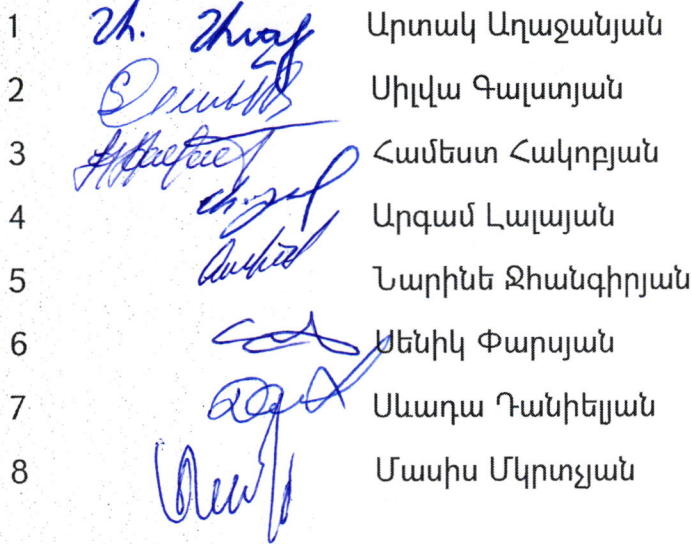 1 Արտակ Աղաջանյան
2 Սիլվա Գալստյան
3 Համեստ Հակոբյան
4 Արգամ Լալայան
5 Նարինե Ջհանգիրյան
6 Սենիկ Փարսյան
7 Սևադա Դանիելյան
8 Մասիս Մկրտչյան